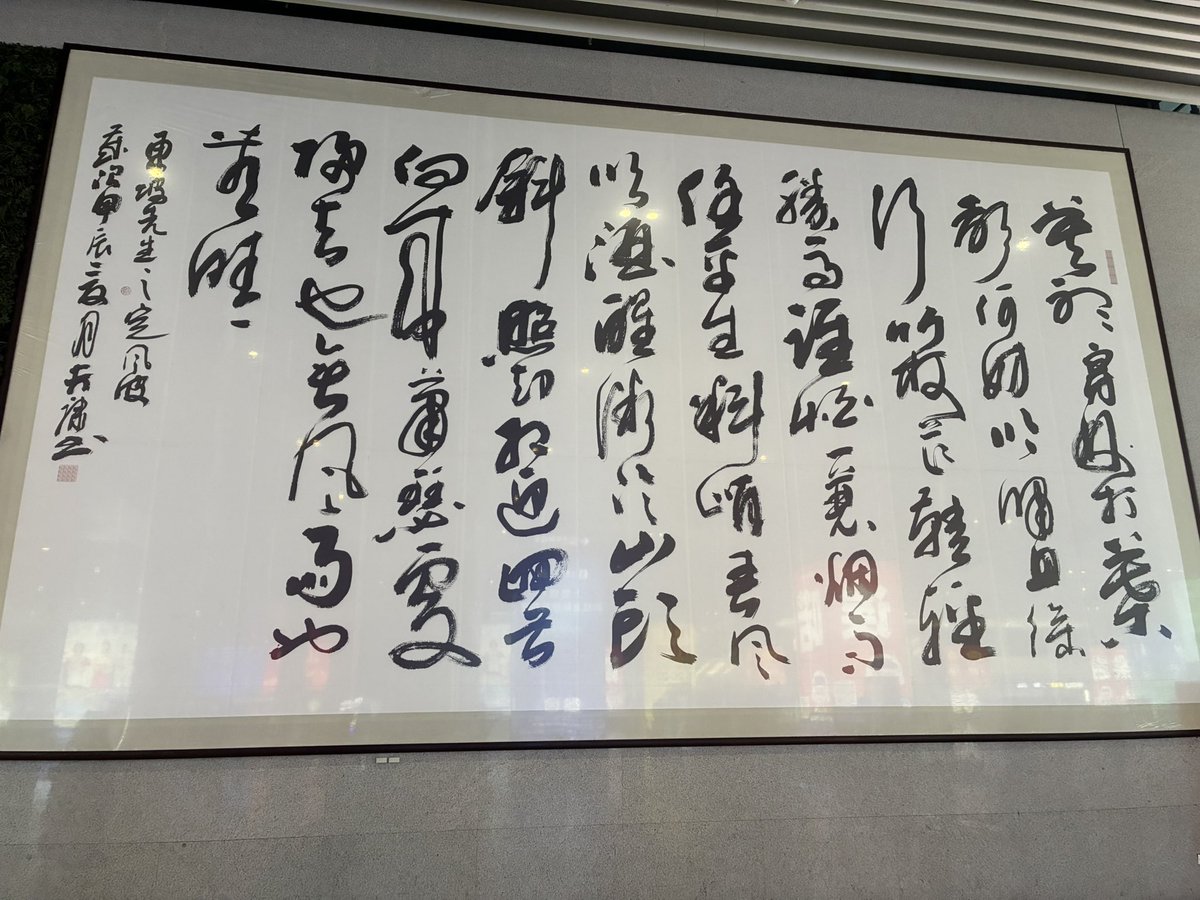 莫聽穿林打葉
聲何妨吟嘯且徐
行竹杖芒鞋輕
勝馬誰怕一蓑烟雨
任平生料峭春風
吹酒醒微冷山頭
斜照却相迎回首
向來蕭瑟處
歸去也無風雨也
無晴
東坡先生之定風波
歲次甲辰夏月書